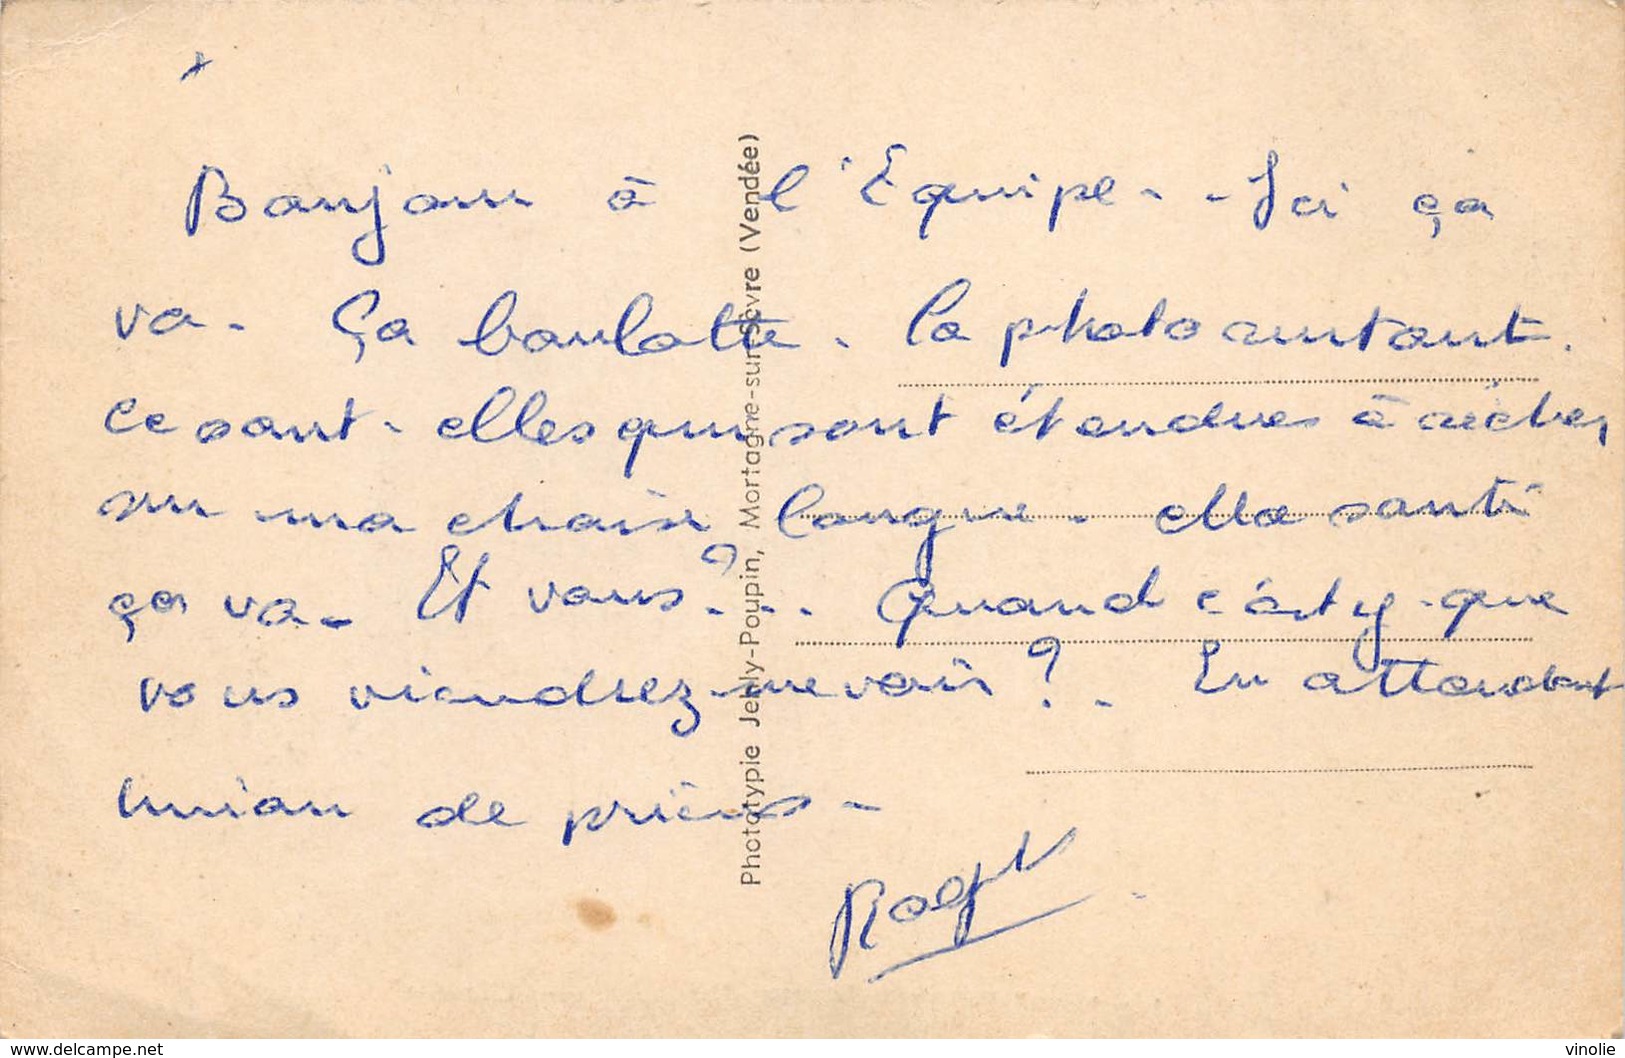 Bonjour à l'Equipe - - Ici ça
va. Ça boulotte. La photo
ce sont - elles qui sont étendues à
sur ma chaise longue. Ma santé
ça va. Et vous? ... Quand c'est y-que
vous viendrez me voir? . En attendant
union de prières.
Phototypie Jehly-Poupin, Mortagne-sur-Sèvre (Vendée)
www.delcampe.net
vinolie